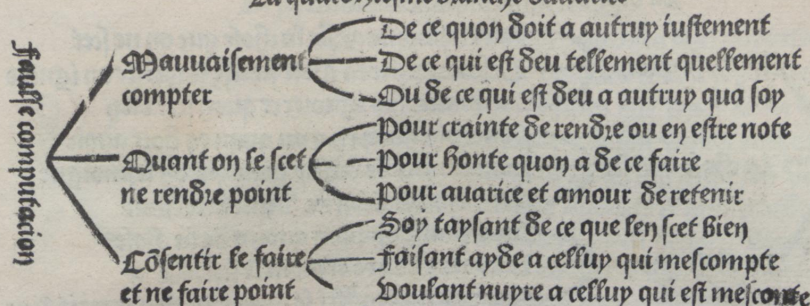 Faulse computacion
Mauuaisement
compter
De ce quon doit a autruy iustement
De ce qui est deu tellement quellement
Ou de ce qui est deu a autruy qua soy
Quant on le scet
ne rendre point
Pour crainte de rendre ou en estre note
Pour honte quon a de ce faire
Pour auarice et amour de retenir
Cōsentir le faire
et ne faire point
Soy taysant de ce que len scet bien
Faisant ayde a celluy qui mescompte
Voulant nuyre a celluy qui est mesconte